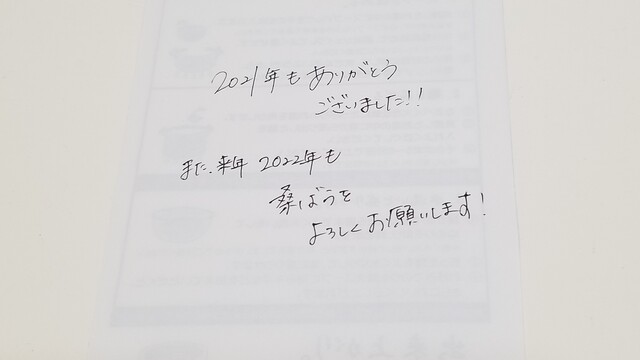 2021年もありがとう
ございました!!
また、来年 2022年も
桑ばらを
よろしくお願いします!